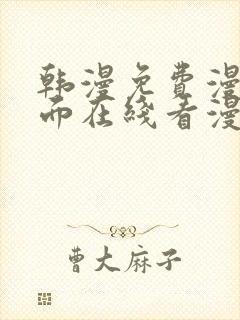 韩漫免费漫
而在线看漫
曹大麻子